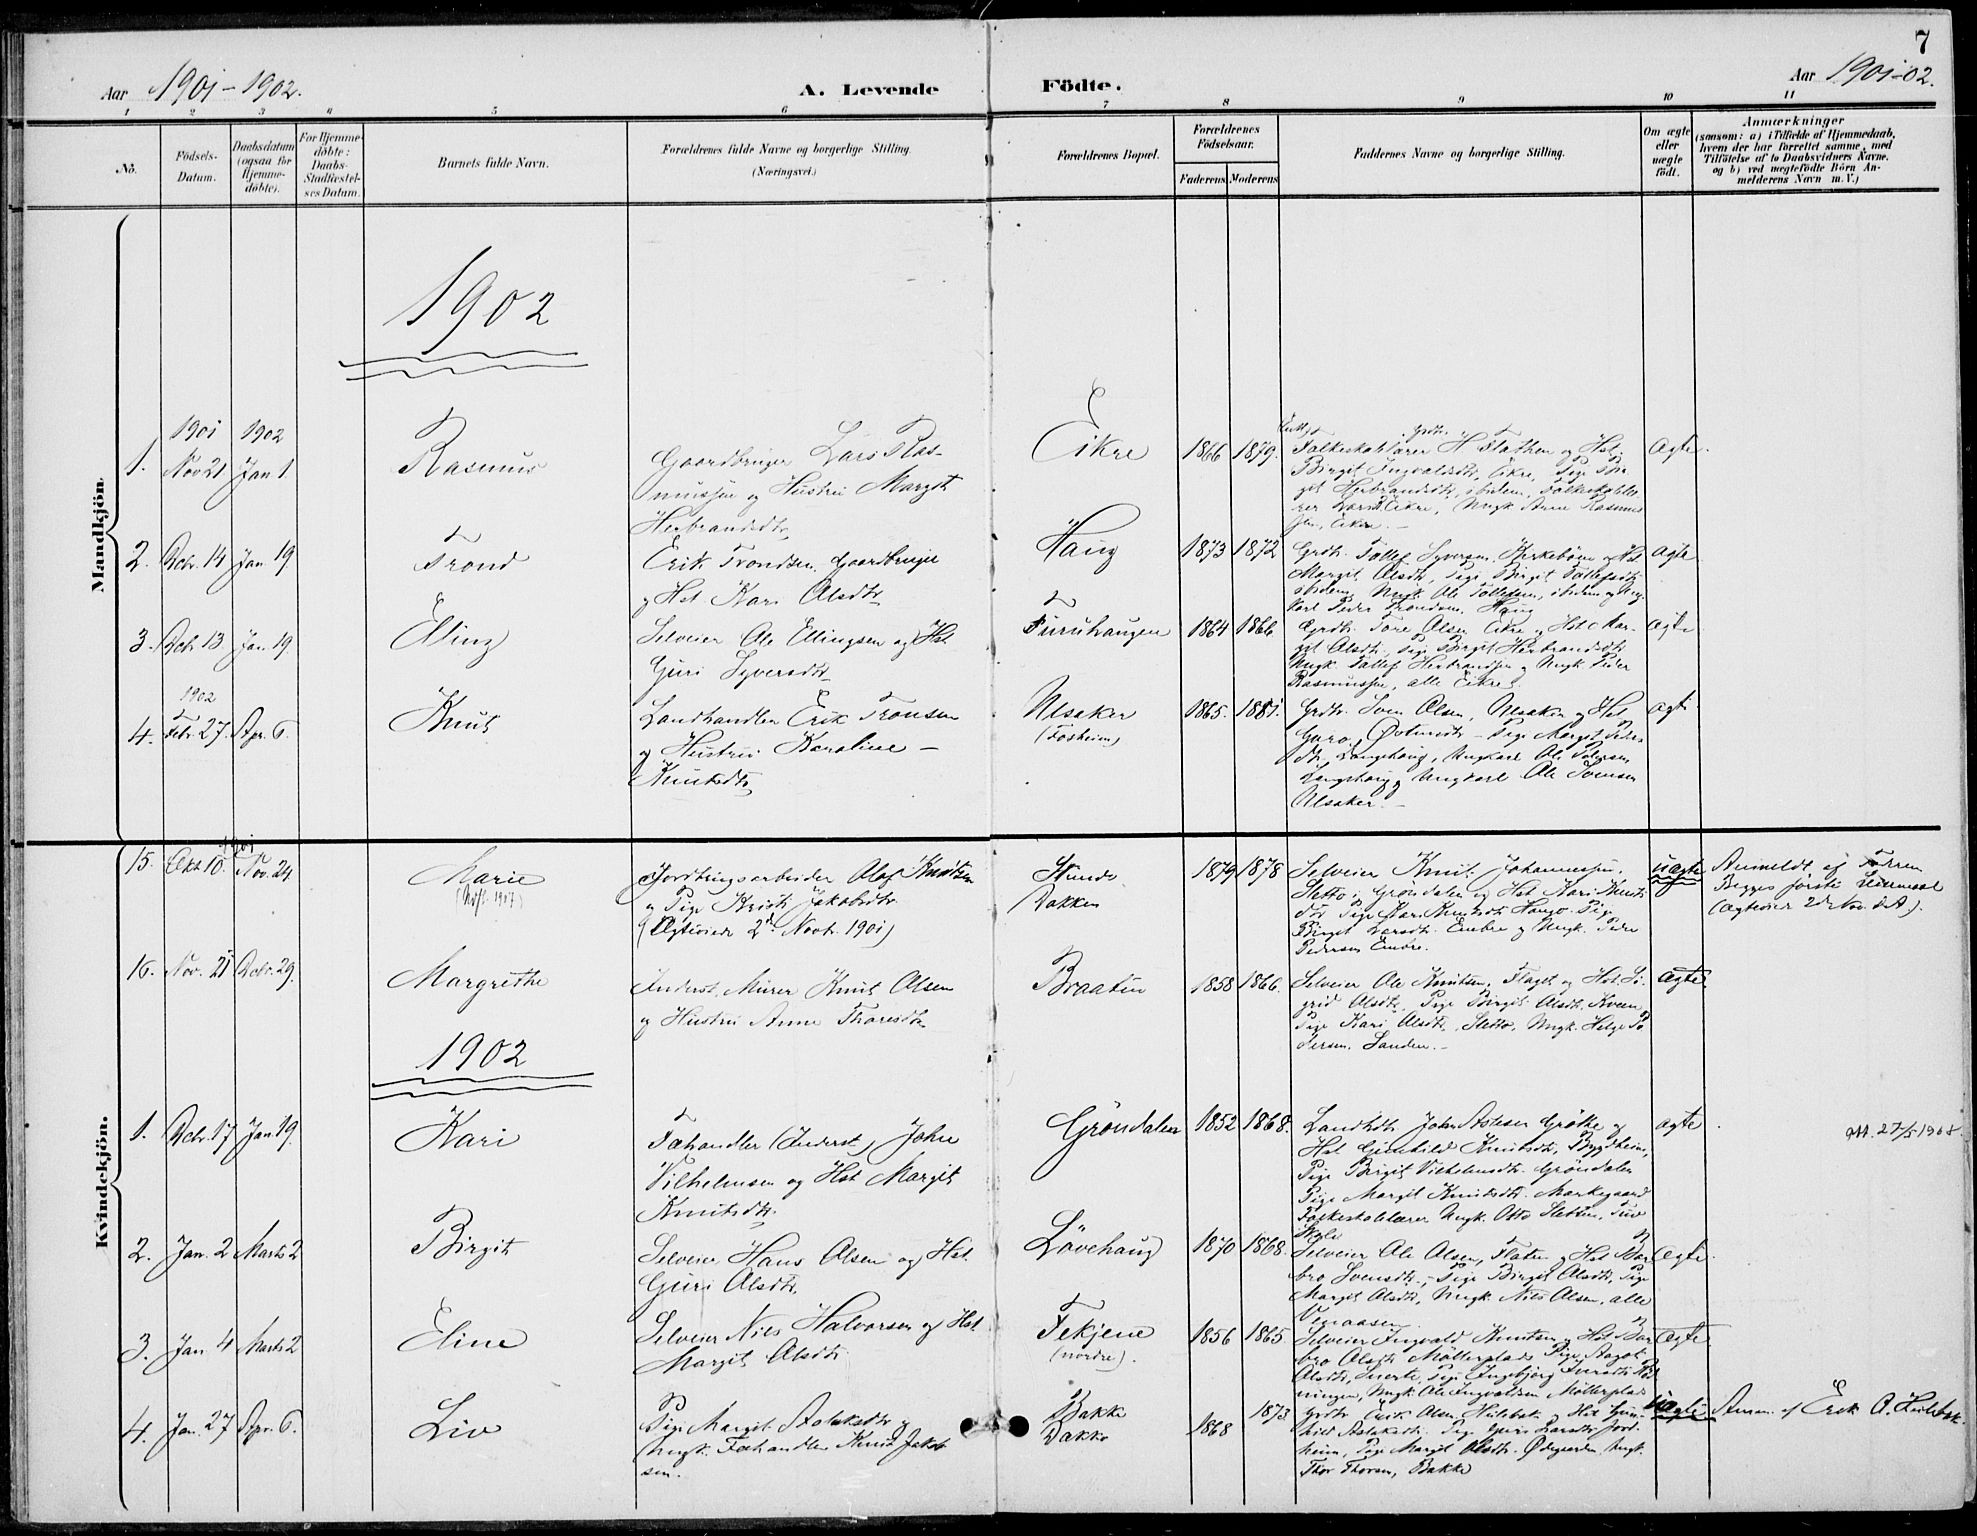 7
Aar 1901-1902. A. Levende Födte. Aar 1901-02.
1 2 3 4 5 6 7 8 9 10 11
No.
Födsels-
Datum.
Daabsdatum
(ogsaa for
Hjemme-
döbte).
For Hjemme-
döbte:
Daabs-
Stadfæstel-
ses Datum.
Barnets fulde Navn.
Forældrenes fulde Navne og borgerlige Stilling.
(Næringsvei.)
Forældrenes Bopæl.
Forældrenes
Födselsaar.
Faderens Moderens
Faddernes Navne og borgerlige Stilling.
Om ægte
eller
uægte
födt.
Anmærkninger
(saasom: a) i Tilfælde af Hjemmedaab,
hvem der har forrettet samme, med
Tilföielse af to Daabsvidners Navne.
og b) ved uægtefödte Börn An-
melderens Navn m.V.)
Mandkjön.
1902
1901 1902
1. Nov 21 Jan 1. Rasmus
Gaardbruger Lars Ras-
mussen og Hustru Margit
Herbrandsdtr.
Eikre 1866 1879.
Folkeskolelærer H Flathen og Hst.
Birgit Ingvaldsdtr, Eikre, Pige Bir
git Herbrandsdtr, ibidem, Folkeskolelæ
rer Lars Eikre, Ungk. Arne Rasmus
sen, Eikre. -
Ægte.
2. Dcbr. 14 Jan. 19 Trond
Erik Trondsen, Gaardbruger
og Hst Kari Olsdtr.
Haug 1873 1872
Grdbr. Tollef Syversen, Kirkeböen og Hst
Margit Olsdtr, Pige Birgit Tollefsdtr
ibidem, Ungk. Ole Tollefsen, ibidem og Ung
karl Peder Trondsen, Haug
ægte
3. Dcbr 13 Jan. 19 Elling
Selveier Ole Ellingsen og Hst.
Guri Syversdtr.
Furuhaugen 1864 1866
Grdbr. Tore Olsen Eikre og Hst Mar-
git Olsdtr, Pige Birgit Herbrandsdtr
Ungk. Tollef Herbrandsen og Ungk. Peder
Rasmussen, alle Eikre
ægte
1902
4. Febr. 27. Apr. 6. Knut
Landhandler Erik Tronsen
og Hustru Karoline -
Knutsdtr.
Ulsaker
(Fosheim)
1865. 1881.
Grdbr. Sven Olsen, Ulsaker og Hst
Guro Östensdtr - Pige Margit Peders
dtr, Langehaug, Ungkarl Ole Pedersen
Langehaug og Ungkarl Ole Svensen
Ulsaker. -
ægte
Kvindekjön.
1901
15. Okt 10. Nov. 24. Marie
(Attst. 1917)
Jordbrugsarbeider Olaf Knutsen
og Pige Kristi Jakobsdtr.
(Ægteviede 2d Novb. 1901)
Bakken
1879 1878
Selveier Knut Johannessen,
Sletto i Gröndalen og Hst Kari Knuts
dtr. Pige Kari Knutsdtr Haugo. Pige
Birgit Larsdtr. Embre og Ungk. Peder
Pedersen Embre.
uægte
Anmeldt af
Begges förste Leiermaal
(Ægteviet 2de Nov. d.A).
16. Nov. 21 Dcbr. 29. Margrethe
Inderst, Murer Knut Olsen
og Hustru Anne Thoresdtr.
Braaten 1858 1866.
Selveier Ole Knutsen, Flaget og Hst. Si-
grid Olsdtr, Pige Birgit Olsdtr. Kveen
Pige Kari Olsdtr, Sletto, Ungk. Helge Pe
dersen. Sanden. -
Ægte
1902
1. Dcbr. 17 Jan 19. Kari
Fæhandler (Inderst) John
Vilhelmsen og Hst Margit
Knutsdtr.
Gröndalen 1852 1868.
Landhdlr. John Grötke og
Hst Gunhild Knutsdtr, Bygdheim,
Pige Birgit Vilhelmsdtr. Gröndalen
Pige Margit Knutsdtr. Markegaard
Folkeskolelærer Ungk. Otto Sletten, Tuv
Skole
ægte
Att. 27/5 1908.
2. Jan. 2 Marts 2 Birgit
Selveier Hans Olsen og Hst.
Guri Olsdtr.
Lövehaug 1870 1868.
Selveier Ole Olsen, Flaten og Hst Bar
bro Svensdtr, - Pige Birgit Olsdtr, Pige
Margit Olsdtr, Ungk. Nils Olsen, alle
Venaasen
Ægte.
3. Jan 4 Marts 2 Eline
Selveier Nils Halvorsen og Hst.
Margit Olsdtr
Tekjene
(nordre).
1856 1865.
Selveier Ingvald Knutsen og Hst Bar
bro Olsdtr Mölleplads Pige Aagot
Olsdtr, Sverte, Pige Ingebjörg
Ungk Ole Ingvaldsen Mölleplads
Ægte.
4. Jan. 27 Apr. 6. Liv
Pige Margit Aslaksdtr og
Ungk. Fæhandler Knut Jakob
sen.
Bakke
Bakko
1868 1873
Grdbr Erik Olsen Hulebak og Hst Gun-
hild Aslaksdtr. Pige Guri Larsdtr Jord
heim, Pige Margit Olsdtr. Ödegaarden, Ungk.
Thor Thorsen, Bakke
uægte
Anm. af Erik O. Hulebak.